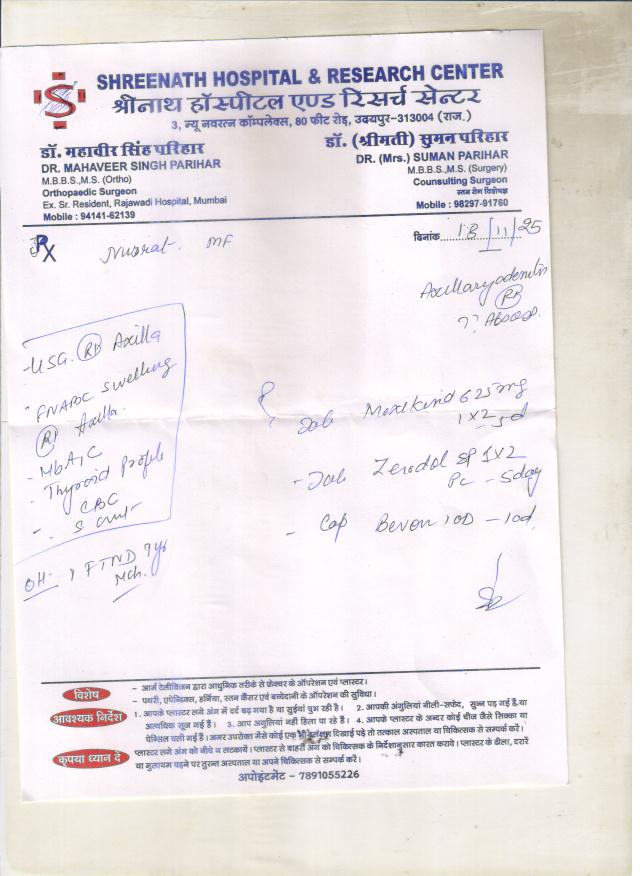 SHREENATH HOSPITAL & RESEARCH CENTER
श्रीनाथ हॉस्पीटल एण्ड रिसर्च सेन्टर
3, न्यू नवरत्न कॉम्पलेक्स, 80 फीट रोड़, उदयपुर-313004 (राज.)
डॉ. महावीर सिंह परिहार
DR. MAHAVEER SINGH PARIHAR
M.B.B.S.,M.S. (Ortho)
Orthopaedic Surgeon
Ex. Sr. Resident, Rajawadi Hospital, Mumbai
Mobile : 94141-62139
डॉ. (श्रीमती) सुमन परिहार
DR. (Mrs.) SUMAN PARIHAR
M.B.B.S.,M.S. (Surgery)
Counsulting Surgeon
स्तन रोग विशेषज्ञ
Mobile : 98297-91760
Rx Nusrat MF
दिनांक 18/11/25
Axillary adenitis
(Rt)
?? Abscess
- USG (Rt) Axilla
FNAC swelling
(Rt) Axilla
- HbA1C
- Thyroid Profile
- CBC
- S creat
OH - 1 FTND 9yr
Mch.
Tab Moxikind 625mg
1x2 5d
- Tab Zerodol SP 1x2
PC - 5day
- Cap Bevon 1OD - 10d
विशेष
- आर्म टेलीविजन द्वारा आधुनिक तरीके से फ्रेक्चर के ऑपरेशन एवं प्लास्टर।
- पथरी, एपेन्डिक्स, हर्निया, स्तन कैंसर एवं बच्चेदानी के ऑपरेशन की सुविधा।
आवश्यक निर्देश
1. आपके प्लास्टर लगे अंग में दर्द बढ़ गया है या सुईयां चुभ रही है। 2. आपकी अंगुलियां नीली-सफेद, सुन्न पड़ गई है,या
अत्यधिक सूज गई हैं। 3. आप अगुलियां नहीं हिला पा रहे हैं। 4. आपके प्लास्टर के अन्दर कोई चीज जैसे सिक्का या
पेन्सिल चली गई हैं। अगर उपरोक्त में से कोई एक भी लक्षण दिखाई पड़े तो तत्काल अस्पताल या चिकित्सक से सम्पर्क करें।
कृपया ध्यान दे
प्लास्टर लगे अंग को नीचे न लटकायें। प्लास्टर से बाहरी अंग को चिकित्सक के निर्देशानुसार कसरत करावे। प्लास्टर के ढीला, दरारे
या मुलायम पड़ने पर तुरन्त अस्पताल या अपने चिकित्सक से सम्पर्क करें।
अपोइंटमेंट - 7891055226